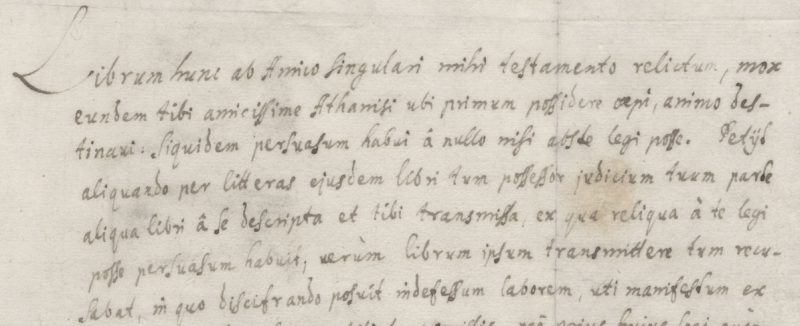 Librum hunc ab Amico singulari mihi testamento relictum, mox
eundem tibi amicissime Athanisi ubi primum possidere cœpi, animo des-
tinavi: siquidem persuasum habui â nullo nisi abs te legi posse. Petijt
aliquando per litteras ejusdem libri tum possessor judicium tuum parte
aliqua libri â se descripta et tibi transmissa, ex qua reliqua â te legi
posse persuasum habuit; verùm librum ipsum transmittere tum recu-
sabat, in quo discifrando posuit indefessum laborem, uti manifestum ex